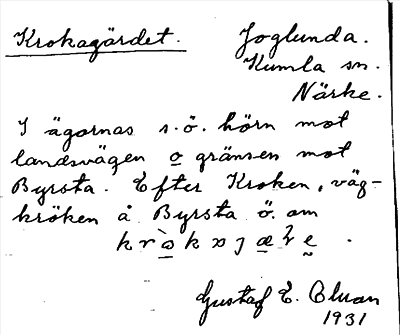 Krokagärdet. Joglunda.
Kumla sn.
Närke.
I ägornas s.ö. hörn mot
landsvägen o gränsen mot
Byrsta. Efter Kroken, väg-
kröken å Byrsta ö. om
Gustaf E.
1931